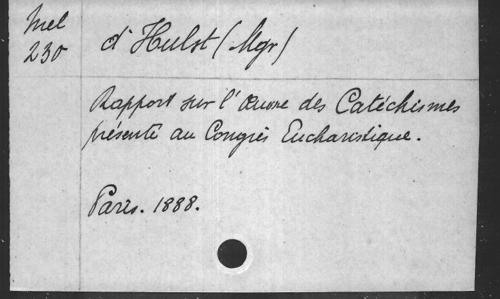 Mel
230
d'Hulst (Mgr)
Rapport sur l'Œuvre des Catéchismes
présenté au Congrès Eucharistique.
Paris. 1888.